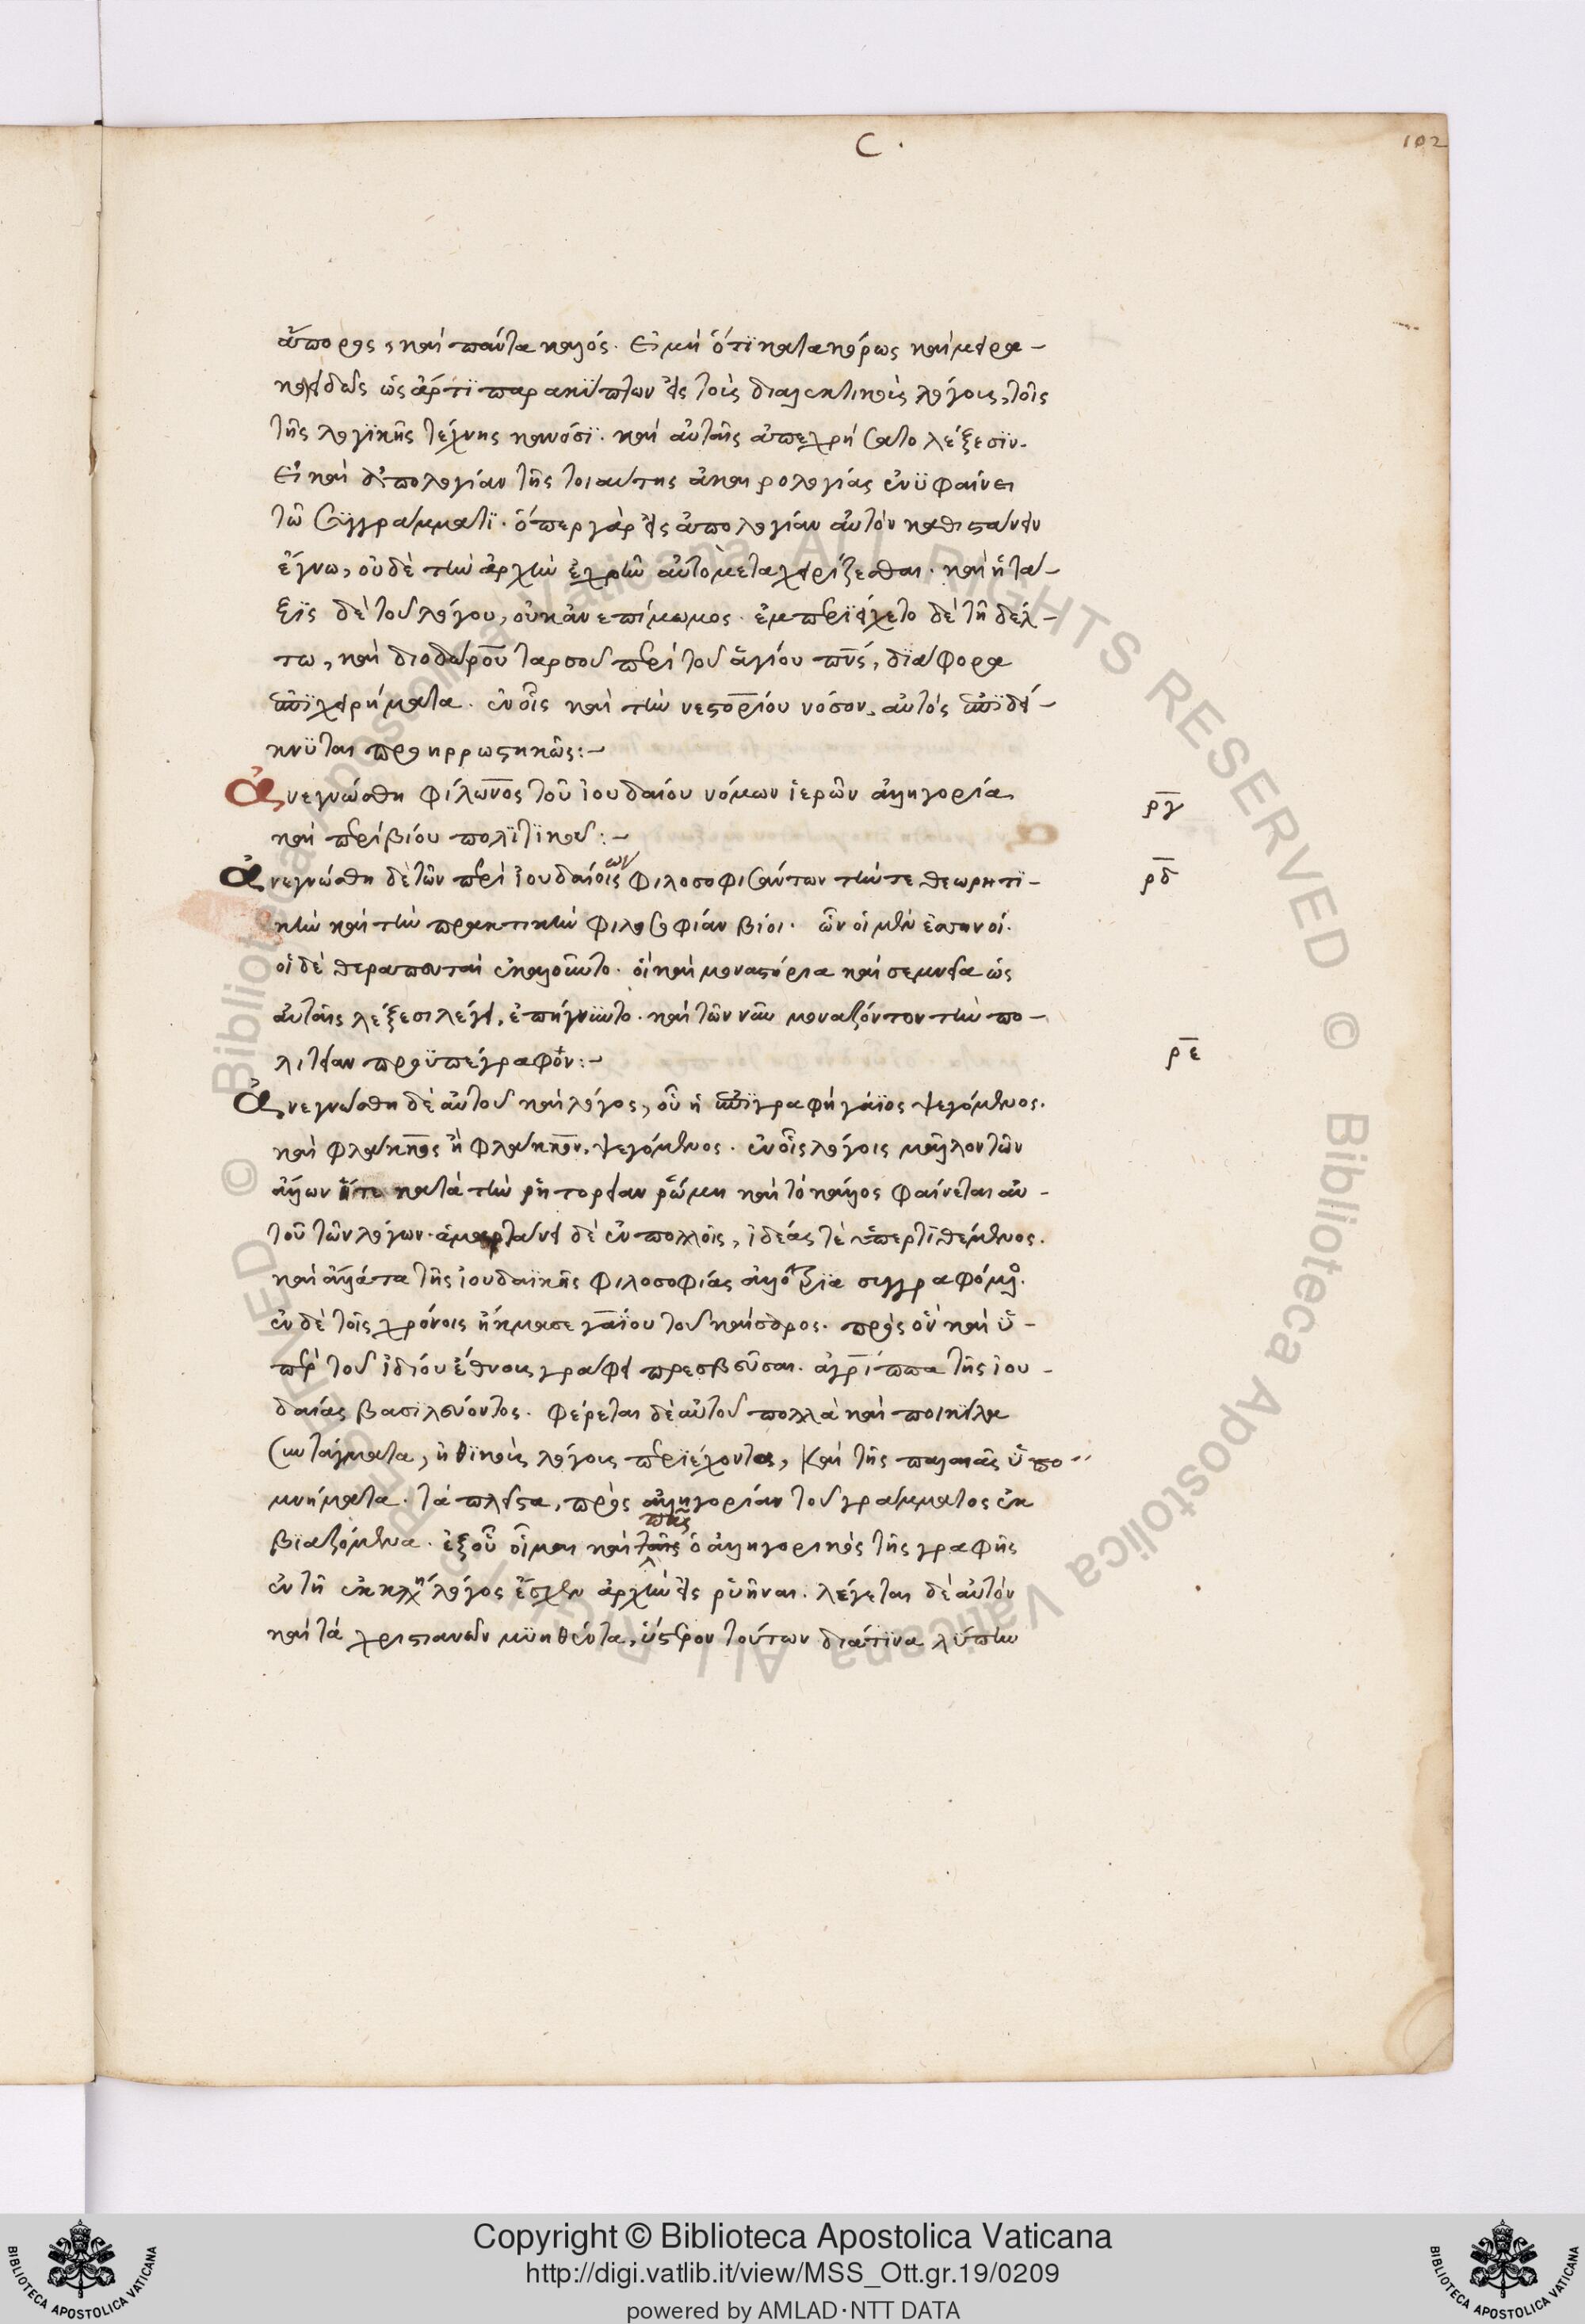 C .
102
ἄπορος, καὶ πάντα καλός. εἰ μὴ ὅτι κατακόρως καὶ μειρα-
κιωδῶς ὡς ἄρτι παρακύπτων εἰς τοὺς διαλεκτικοὺς λόγους, τοῖς
τῆς λογικῆς τέχνης κανόσι. καὶ αὐταῖς ἀπεχρήσατο λέξεσιν.
εἰ καὶ ἀπολογίαν τῆς τοιαύτης ἀκαιρολογίας ἐνυφαίνει
τῷ συγγράμματι. ὅπερ γὰρ εἰς ἀπολογίαν αὐτὸν καθιστάνειν
ἔγνω, οὐδὲ τὴν ἀρχὴν ἐχρῆν αὐτὸ μεταχειρίζεσθαι. καὶ ἡ τά-
ξις δὲ τοῦ λόγου, οὐκ ἀνεπίμωμος. ἐμπεριείχετο δὲ τῇ δέλ-
τω, καὶ διοδώρου ταρσοῦ περὶ τοῦ ἁγίου πνς, διάφορα
ἐπιχειρήματα. ἐν οἷς καὶ τὴν νεστορίου νόσον, αὐτὸς ἐπιδεί-
κνυται προηρρωστηκώς:-
Ἀνεγνώσθη φίλωνος τοῦ ἰουδαίου νόμων ἱερῶν ἀλληγορία
ργ
καὶ περὶ βίου πολιτικοῦ:-
Ἀνεγνώσθη δὲ τῶν περὶ ἰουδαίοις ων φιλοσοφισάντων τήν τε θεωρητι-
ρδ
κὴν καὶ τὴν πρακτικὴν φιλοσοφίαν βίοι. ὧν οἱ μὲν ἐσσηνοί.
οἱ δὲ θεραπευταὶ ἐκαλοῦντο. οἳ καὶ μοναστήρια καὶ σεμνεῖα ὡς
αὐταῖς λέξεσι λέγει, ἐπήγνυντο. καὶ τῶν νῦν μοναζόντον τὴν πο-
λιτείαν προϋπέγραφον:-
ρε
Ἀνεγνώσθη δὲ αὐτοῦ καὶ λόγος, οὗ ἡ ἐπιγραφὴ γάϊος ψεγόμενος.
καὶ φλάκκος ἢ φλάκκον, ψεγόμενος. ἐν οἷς λόγοις μᾶλλον τῶν
ἄλλων ἥτε κατὰ τὴν ῥητορείαν ῥώμη καὶ τὸ κάλλος φαίνεται αὐ-
τοῦ τῶν λόγων. ἁμαρτάνει δὲ ἐν πολλοῖς, ἰδέας τὲ ὑπερτιθέμενος.
καὶ ἄλλάττα τῆς ἰουδαϊκῆς φιλοσοφίας ἀλλότρια συγγραφόμενος.
ἐν δὲ τοῖς χρόνοις ἤκμασε γαΐου τοῦ καίσαρος. πρὸς ὃν καὶ ὑ-
πὲρ τοῦ ἰδίου ἔθνους γράφει πρεσβεῦσαι. ἀγρίππα τῆς ἰου-
δαίας βασιλεύοντος. φέρεται δὲ αὐτοῦ πολλὰ καὶ ποικίλα
συντάγματα, ἠθικοὺς λόγους περιέχοντα, καὶ τῆς παλαιᾶς ὑπο-
μνήματα. τὰ πλεῖστα, πρὸς ἀλληγορίαν τοῦ γράμματος ἐκ
βιαζόμενα. ἐξ οὗ οἶμαι καὶ ταῖς ὁ ἀλληγορικὸς τῆς γραφῆς
ἐν τῇ ἐκκλη λόγος ἔσχεν ἀρχὴν εἰς ῥυῆναι. λέγεται δὲ αὐτὸν
καὶ τὰ χριστιανῶν μυηθέντα, ὕστερον τούτων διά τινα λύπην